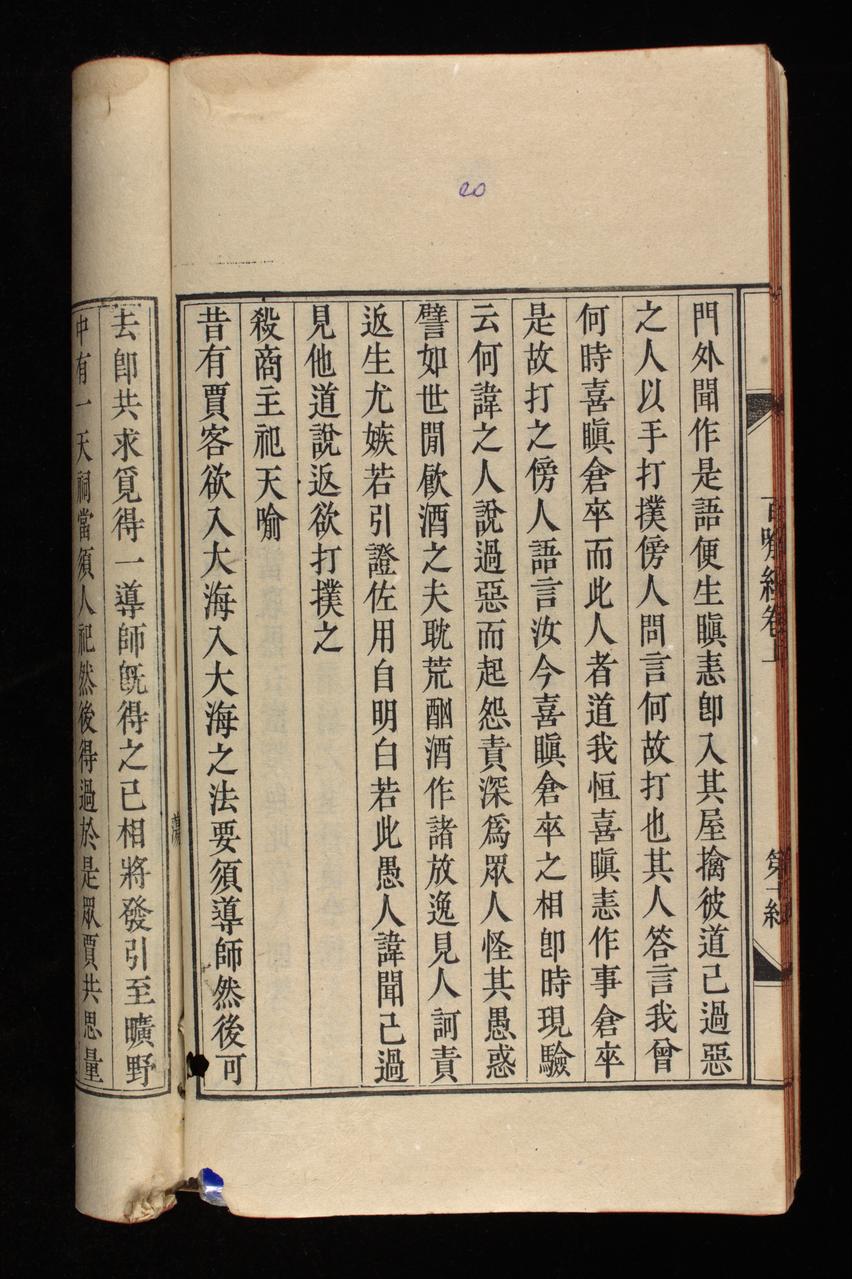 百喻經卷上
門外聞作是語便生瞋恚卽入其屋擒彼道己過惡
之人以手打撲傍人問言何故打也其人答言我曾
何時喜瞋倉卒而此人者道我恒喜瞋恚作事倉卒
是故打之傍人語言汝今喜瞋倉卒之相卽時現驗
云何諱之人說過惡而起怨責深爲眾人怪其愚惑
譬如世閒飮酒之夫耽荒酗酒作諸放逸見人訶責
返生尤嫉若引證佐用自明白若此愚人諱聞己過
見他道說返欲打撲之
殺商主祀天喻
昔有賈客欲入大海入大海之法要須導師然後可
去卽共求覓得一導師旣得之已相將發引至曠野
中有一天祠當須人祀然後得過於是眾賈共思量
20